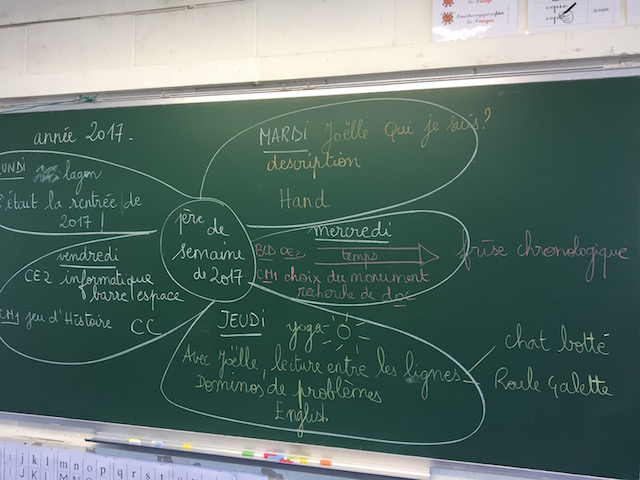 année 2017.
LUNDI lagon
C'était la rentrée de
2017 !
MARDI Joëlle Qui je suis ?
description
Hand
1ère
de
semaine
de 2017
mercredi
CE2 temps frise chronologique
CM1 choix du monument
recherche de doc
vendredi
CE2 informatique
barre espace
CM1 jeu d'Histoire CC
JEUDI
yoga
Avec Joëlle, lecture entre les lignes
Dominos de problèmes
English
chat botté
Roule Galette
copie
j k l m n o p q r s t
J K L M N